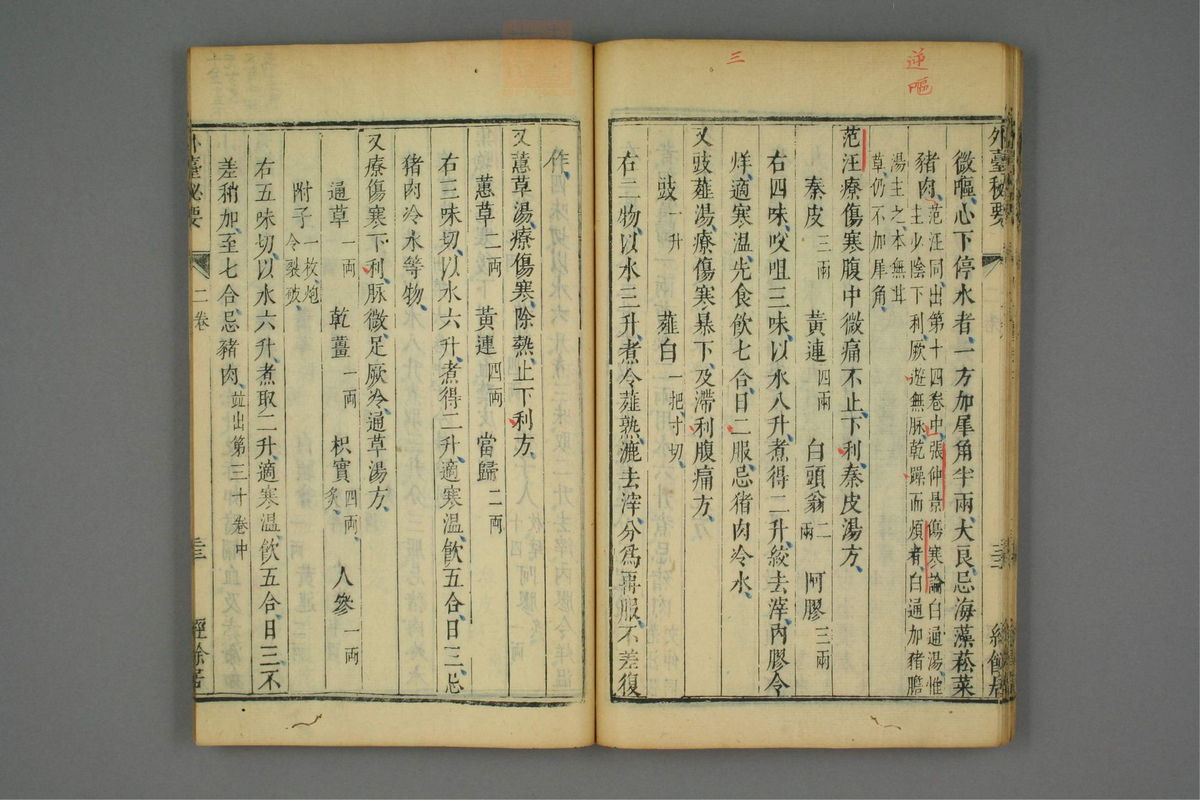 逆嘔
三
外臺秘要
微嘔心下停水者一方加犀角半兩大良忌海藻菘菜
豬肉范汪同出第十四卷中張仲景傷寒論白通湯惟
主少陰下利厥逆無脉乾躁而煩者白通加豬膽
湯主之本無茸
草仍不加犀角
范汪療傷寒腹中微痛不止下利秦皮湯方
秦皮三兩 黃連四兩 白頭翁二兩 阿膠三兩
右四味㕮咀三味以水八升煮得二升絞去滓內膠令
烊適寒溫先食飲七合日二服忌豬肉冷水
又豉薤湯療傷寒暴下及滯利腹痛方
豉一升 薤白一把寸切
右二物以水三升煮令薤熟漉去滓分爲再服不差復
作
又蕙草湯療傷寒除熱止下利方
蕙草二兩 黃連四兩 當歸二兩
右三味切以水六升煮得二升適寒溫飲五合日三忌
豬肉冷水等物
又療傷寒下利脉微足厥冷通草湯方
通草一兩 乾薑一兩 枳實四兩炙 人參一兩
附子一枚炮令裂破
右五味切以水六升煮取二升適寒溫飲五合日三不
差稍加至七合忌豬肉並出第三十卷中
外臺秘要 二卷 三三 經餘居